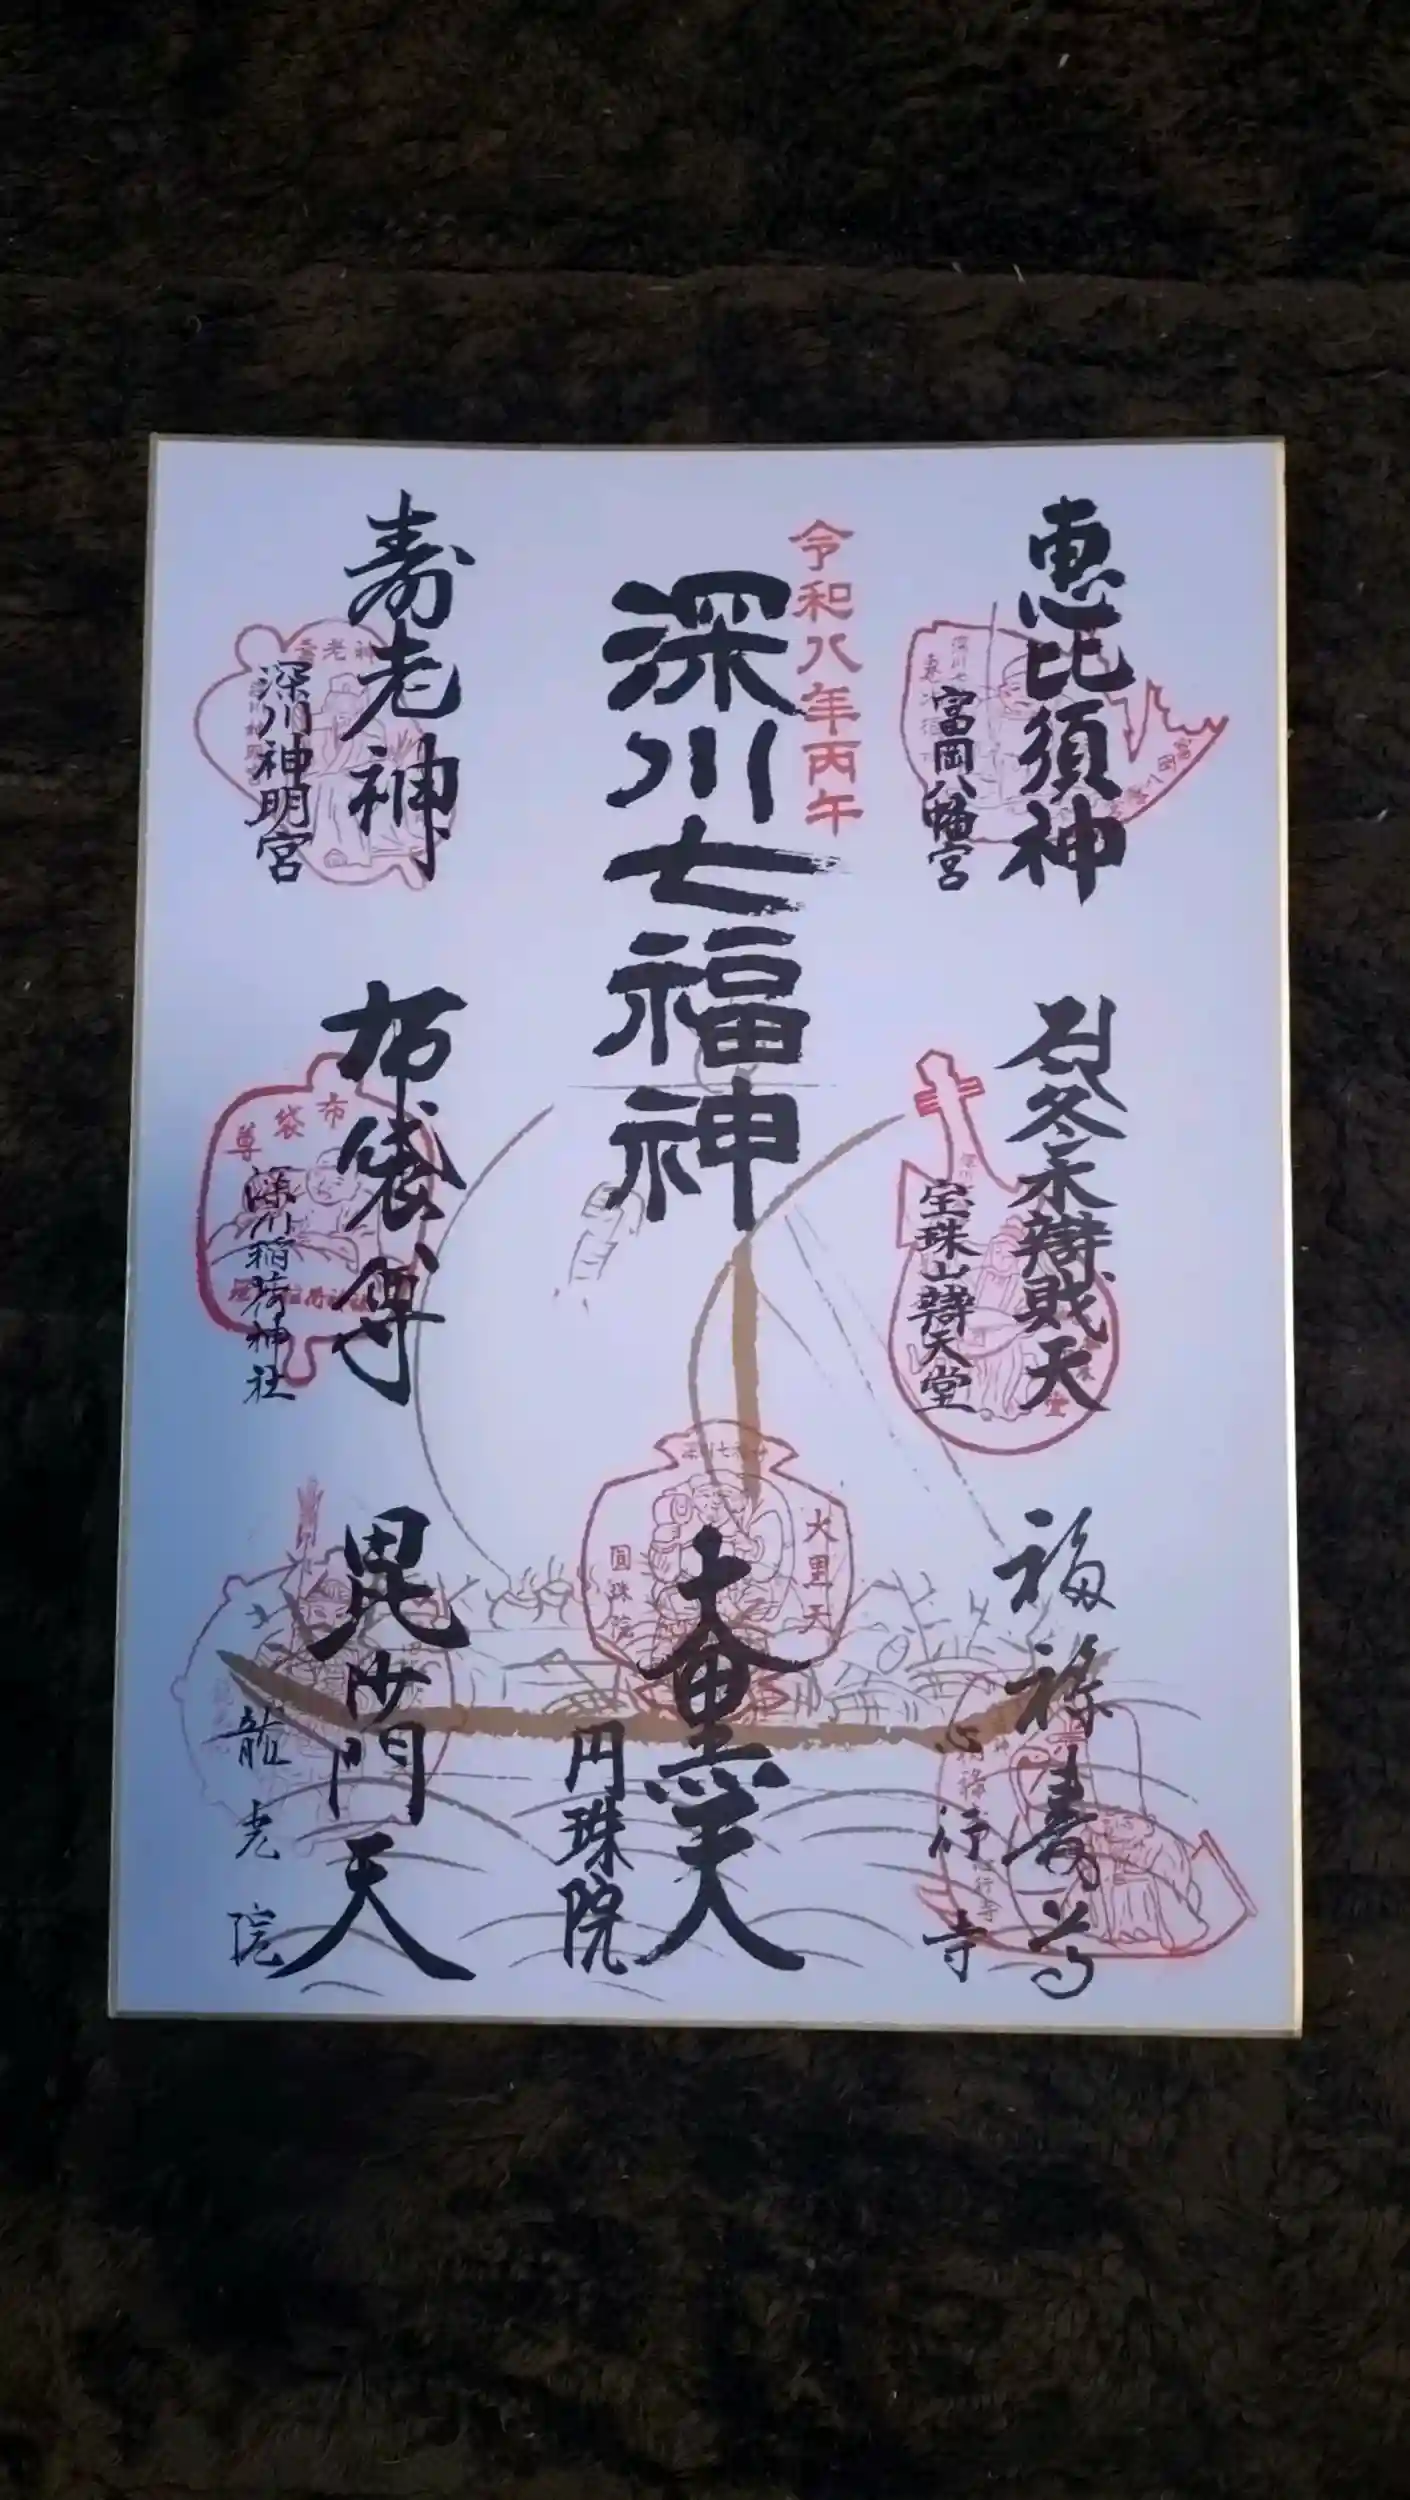 恵比須神
富岡八幡宮
冬木辯財天
宝珠山辨天堂
福禄寿尊
心行寺
令和八年丙午
深川七福神
大黒天
圓珠院
大黒天
円珠院
寿老神
寿老神
深川神明宮
布袋尊
布袋尊
深川稲荷神社
毘沙門天
龍光院